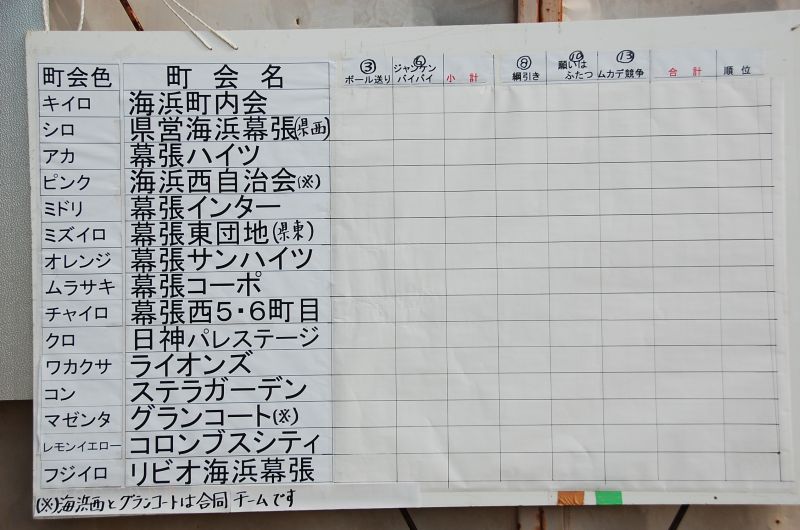 町会色 町会名 ③ボール送り ⑥ジャンケンバイバイ 小計 ⑧綱引き ⑩願いはふたつ ⑬ムカデ競争 合計 順位
キイロ 海浜町内会
シロ 県営海浜幕張(県西)
アカ 幕張ハイツ
ピンク 海浜西自治会(※)
ミドリ 幕張インター
ミズイロ 幕張東団地(県東)
オレンジ 幕張サンハイツ
ムラサキ 幕張コーポ
チャイロ 幕張西5・6町目
クロ 日神パレステージ
ワカクサ ライオンズ
コン ステラガーデン
マゼンタ グランコート(※)
レモンイエロー コロンブスシティ
フジイロ リビオ海浜幕張
(※)海浜西とグランコートは合同チームです